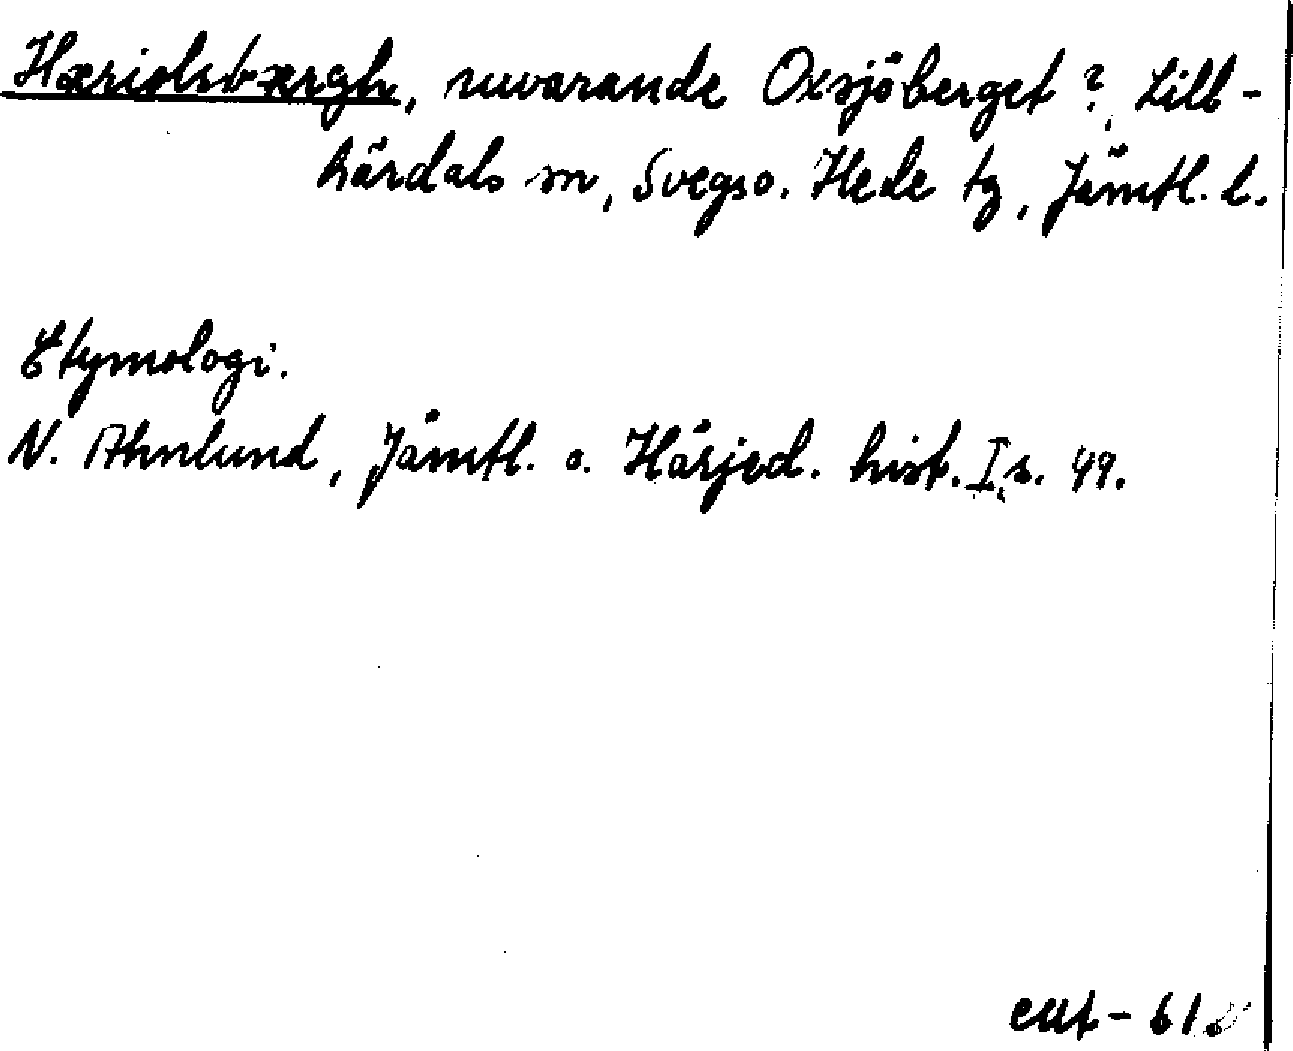 Hæriolsbærgh, nuvarande Oxsjöberget?, Lill-
härdals sn, Svegs o. Hede tg, Jämtl. l.
Etymologi.
N. Ahnlund, Jämtl. o. Härjed. hist. I, s. 49.
EUt-61.